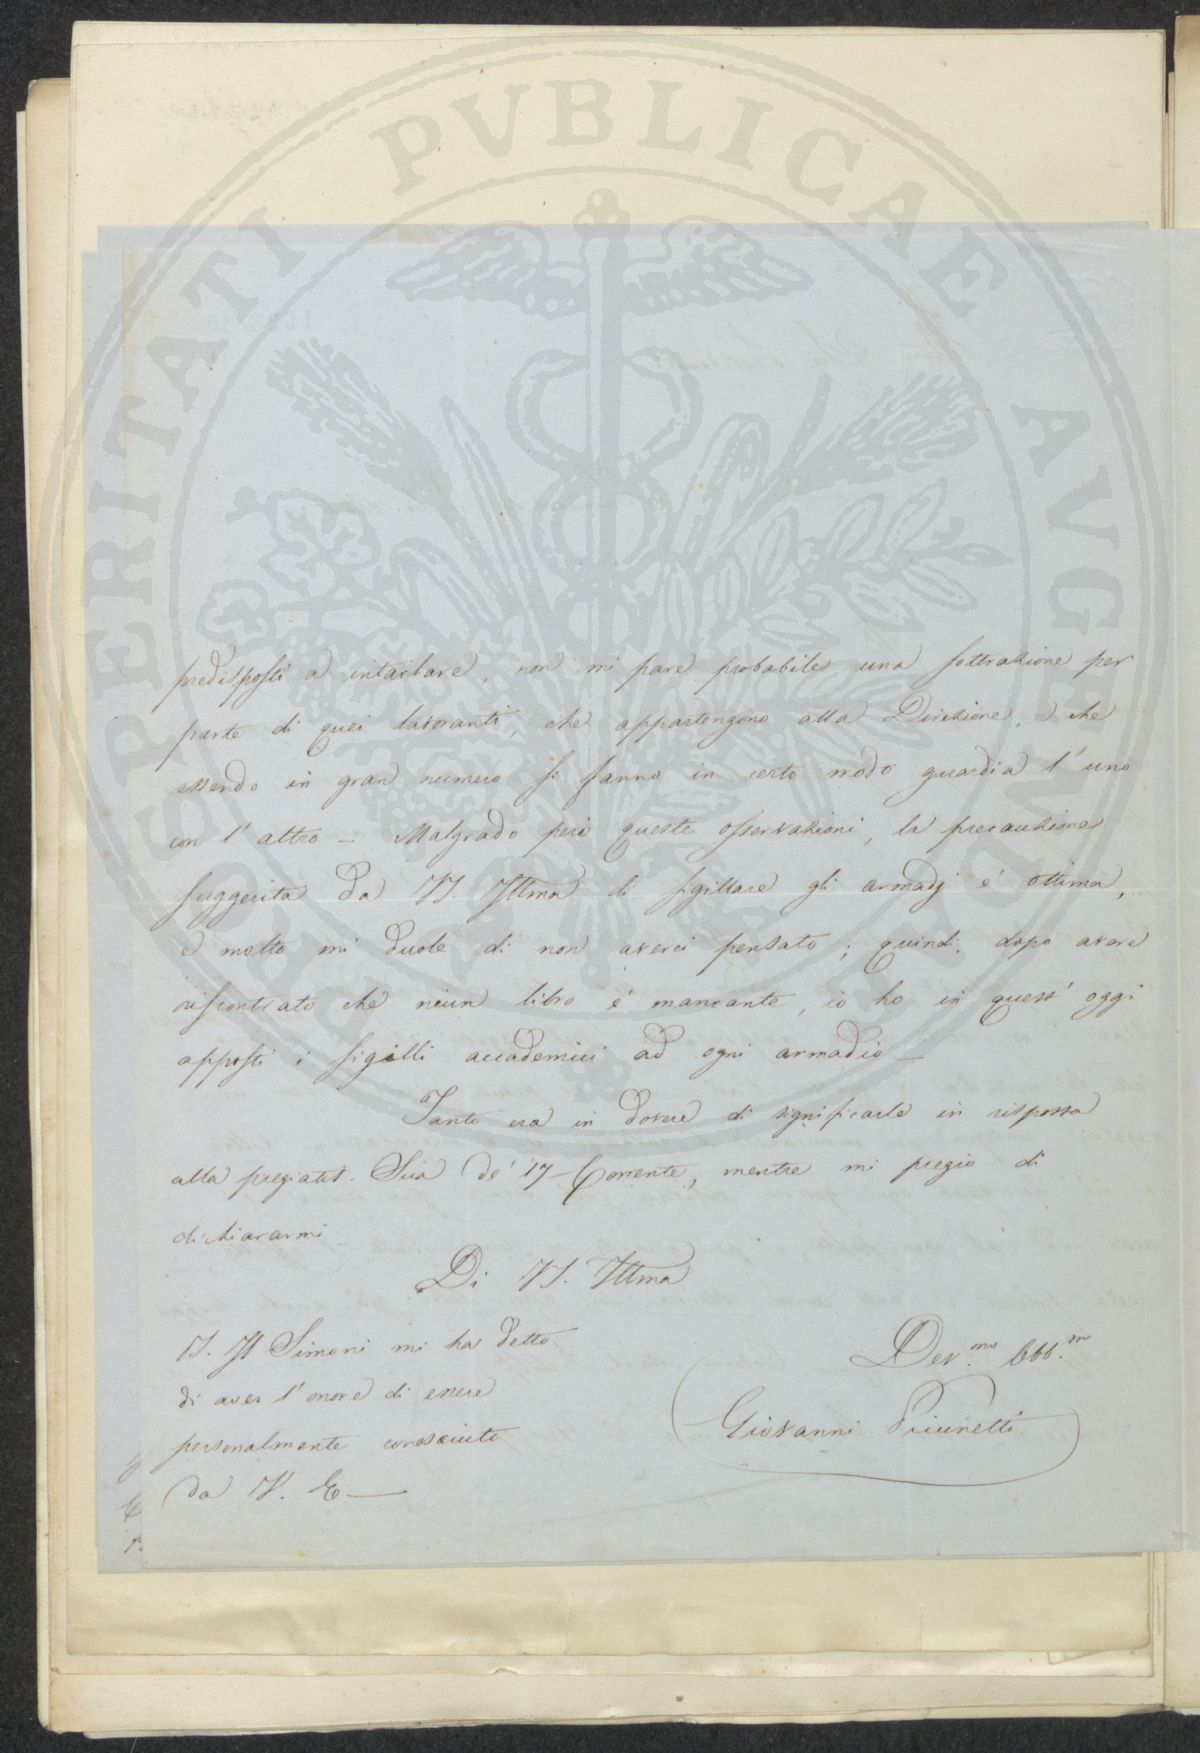 PROSPERITATI PVBLICAE AVGENDAE
predisposti a intaccare, non mi pare probabile una sottrazione per
parte di quei lavoranti, che appartengono alla Direzione, e che
essendo in gran numero si fanno in certo modo guardia l'uno
con l'altro – Malgrado però queste osservazioni, la precauzione
suggerita da VS. Illma di sigillare gli armadj è ottima,
e molto mi duole di non averci pensato; quindi, dopo avere
riscontrato che niun libro è mancante, io ho in quest'oggi
apposti i sigilli accademici ad ogni armadio –
Tanto era in dovere di significarle in risposta
alla pregiatis. Sua de' 17 Corrente, mentre mi pregio di
dichiararmi
Di VS. Illma
Dev.mo Obb.m
Giovanni
P.S. Il Simoni mi ha detto
di aver l'onore di essere
personalmente conosciuto
da V. E –